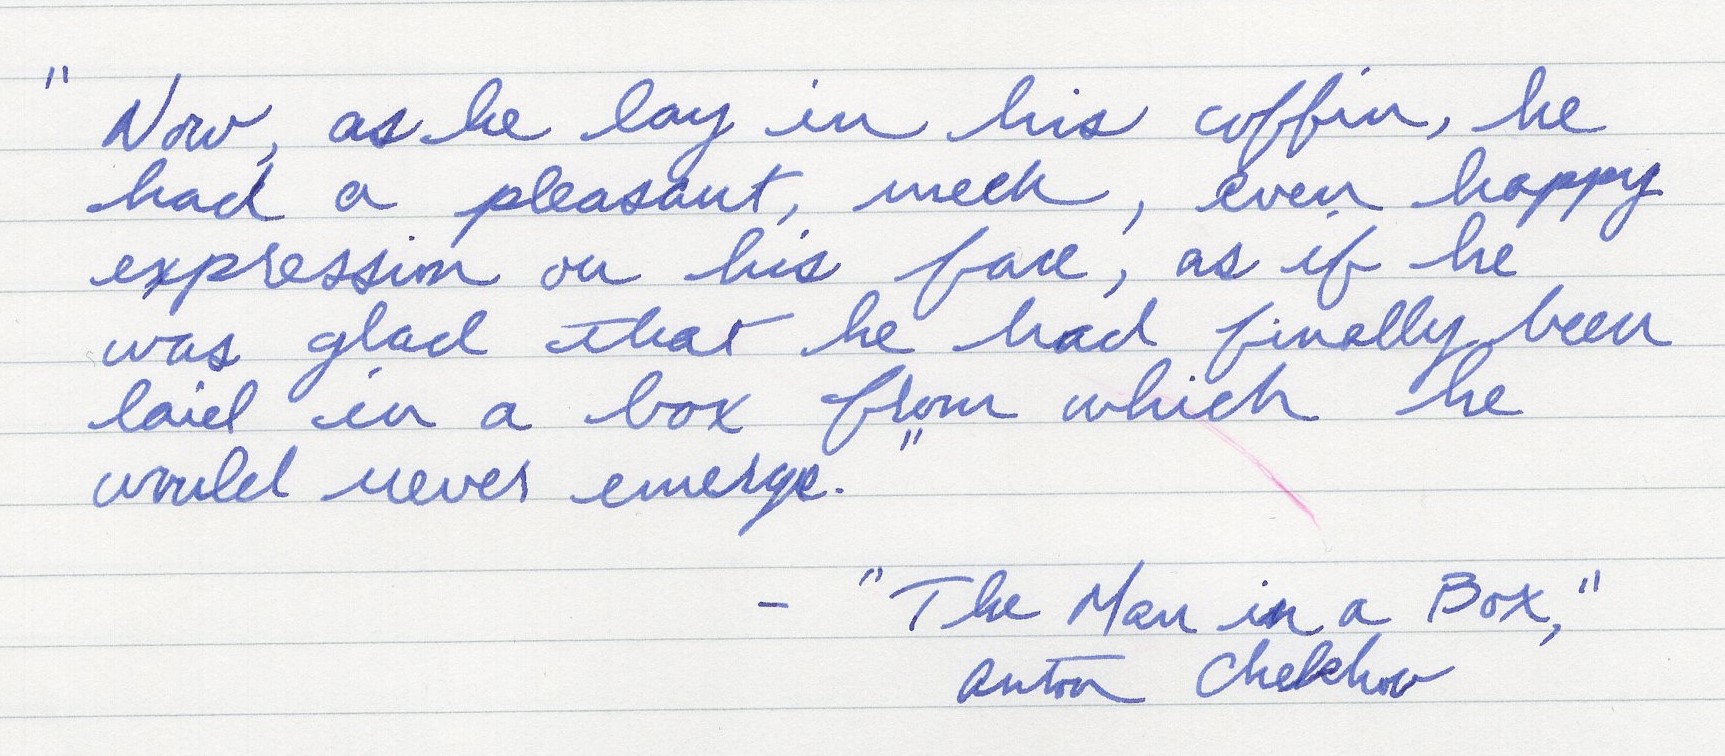 "Now, as he lay in his coffin, he
had a pleasant, meek, even happy
expression on his face, as if he
was glad that he had finally been
laid in a box from which he
would never emerge."
- "The Man in a Box,"
Anton Chekhov